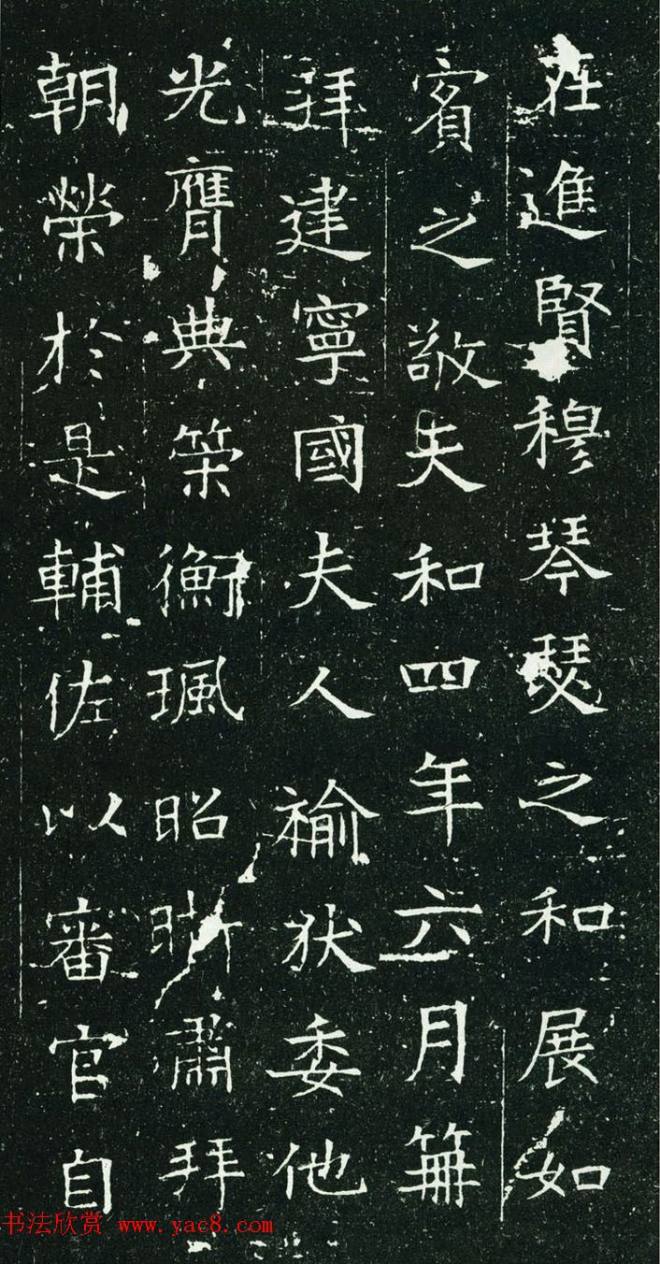 在進賢穆琴瑟之和展如
賓之敬天和四年六月冊
拜建寧國夫人褕狄委他
光膺典策衡珮昭晣肅拜
朝榮於是輔佐以審官自
书法欣赏 www.yac8.com